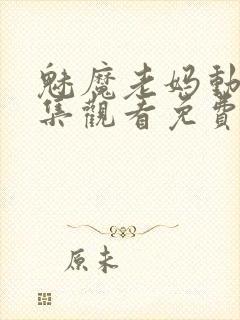 魅魔老妈動
集觀看免費
原来